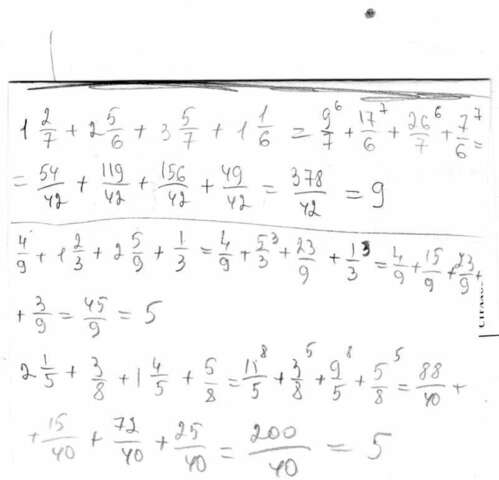 1 2/7 + 2 5/6 + 3 5/7 + 1 1/6 = 9/7^6 + 17/6^7 + 26/7^6 + 7/6^7 =
= 54/42 + 119/42 + 156/42 + 49/42 = 378/42 = 9
4/9 + 1 2/3 + 2 5/9 + 1/3 = 4/9 + 5/3^3 + 23/9 + 1/3^3 = 4/9 + 15/9 + 23/9 +
+ 3/9 = 45/9 = 5
2 1/5 + 3/8 + 1 4/5 + 5/8 = 11/5^8 + 3/8^5 + 9/5^8 + 5/8^5 = 88/40 +
+ 15/40 + 72/40 + 25/40 = 200/40 = 5